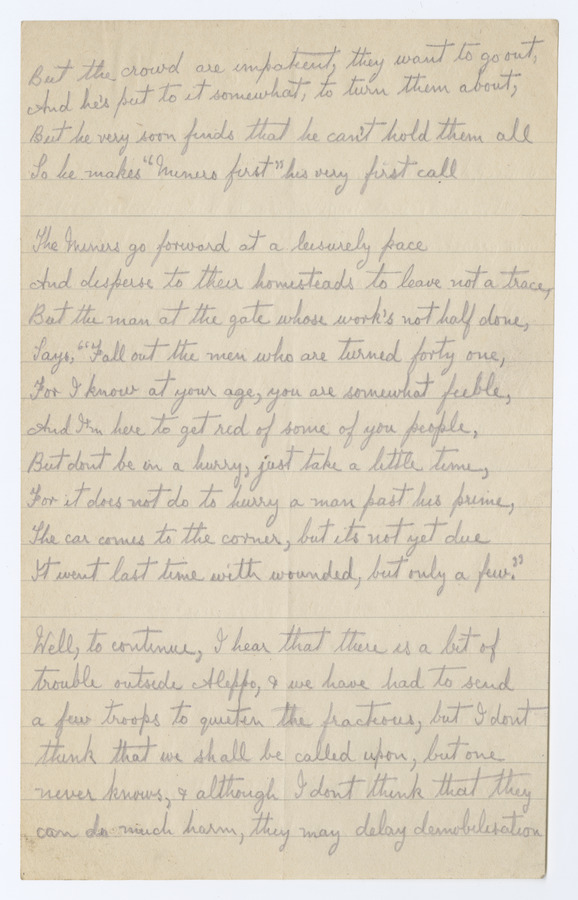 But the crowd are impatient, they want to go out,
And he's put to it somewhat, to turn them about,
But he very soon finds that he can't hold them all
So he makes "Miners first" his very first call
The Miners go forward at a leisurely pace
And disperse to their homesteads to leave not a trace,
But the man at the gate whose work's not half done,
Says, "Fall out the men who are turned forty one,
For I know at your age, you are somewhat feeble,
And I'm here to get rid of some of you people,
But dont be in a hurry, just take a little time,
For it does not do to hurry a man past his prime,
The car comes to the corner, but its not yet due
It went last time with wounded, but only a few."
Well, to continue, I hear that there is a bit of
trouble outside Aleppo, & we have had to send
a few troops to quieten the fractious, but I dont
think that we shall be called upon, but one
never knows, & although I dont think that they
can do much harm, they may delay demobilisation